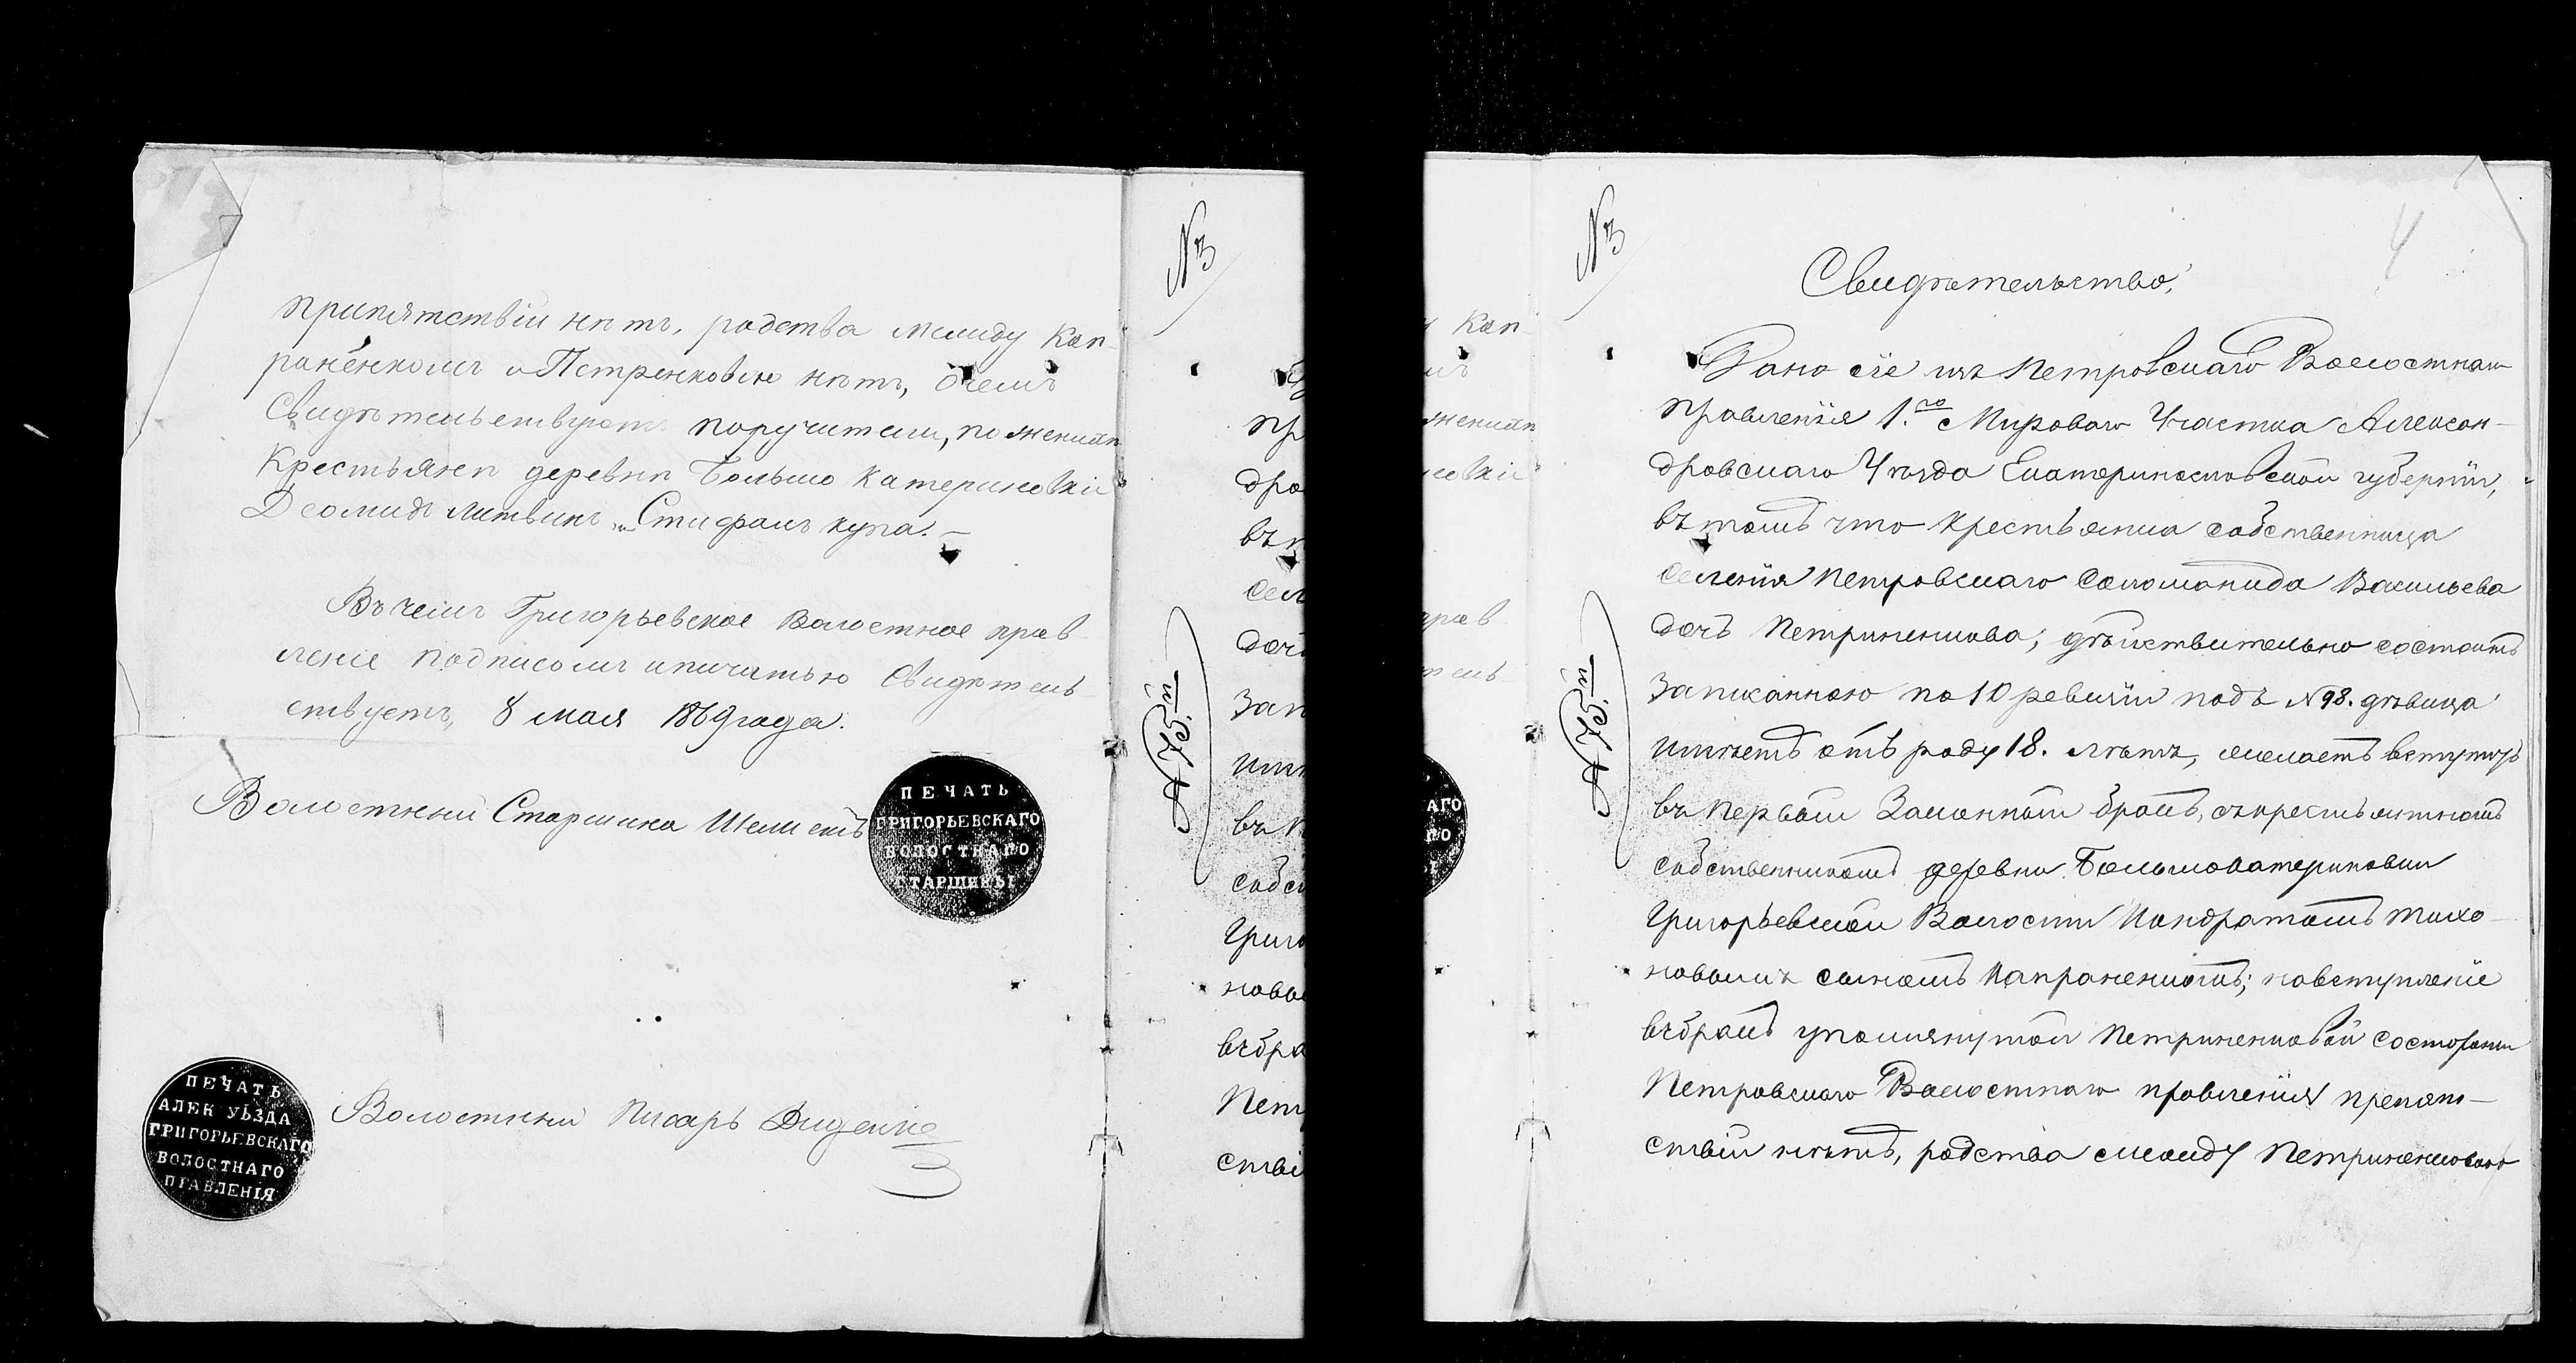 припятствіи нѣтъ, родства между Кап-
раненкомъ и Петренковою нѣтъ, о чемъ
Свидѣтельствуютъ поручители, по женихѣ
Крестьяне деревни Большо Катериновки
Деомидъ Литвинъ и Стифанъ Куца.-
Въ чемъ Григорьевское Волостное прав-
леніе подписомъ и пичатью Свидѣтель-
ствуетъ, 8 мая 1869 года.
Волостный Старшина
ПЕЧАТЬ
ГРИГОРЬЕВСКАГО
ВОЛОСТНАГО
СТАРШИНЫ
ПЕЧАТЬ
АЛЕК УЬЗДА
ГРИГОРЬЕВСКАГО
ВОЛОСТНАГО
ПРАВЛЕНІЯ
Волостный Писарь Диденко
№3
пр
дро
въ т
Сел
дочь
Зап
имѣ
въ п
собст
Григо
новы
въ бра
Петр
ствіи
Кап
мъ
женихѣ
новки
прав
тель
АГО
№3
4
Свидѣтельство,
Дано сіе изъ Петровскаго Волостнаго
правленія 1.го Мироваго Участка Алексан-
дровскаго Уѣзда Екатеринославской губерніи,
въ томъ что крестьянка собственница
селенія Петровскаго Соломонида Васильева
дочь Петриненкова, дѣйствительно состоитъ
Записанною по 10 ревизіи подъ №98. дѣвица
имѣетъ отъ роду 18. лѣтъ, желаетъ вступить
въ первый Законный бракъ, съ крестьяниномъ
собственникомъ деревни Большокатериновки
Григорьевской Волости Кондратомъ Тихо-
новымъ сыномъ Капраненкомъ; на вступленіе
въ бракъ упомянутой Петриненковой со стороны
Петровскаго Волостнаго правленія препят-
ствій нѣтъ, родства между Петриненковою